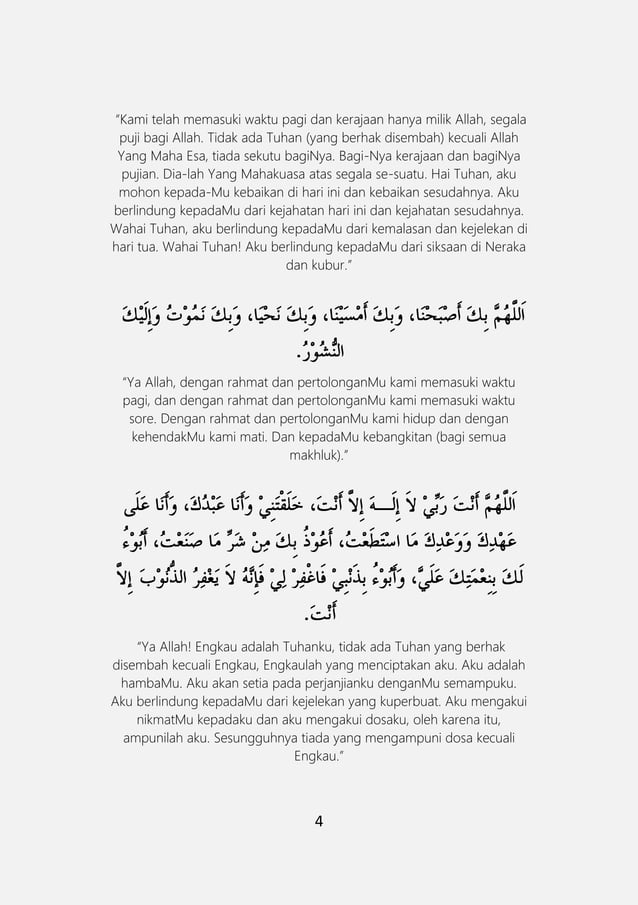 “Kami telah memasuki waktu pagi dan kerajaan hanya milik Allah, segala
puji bagi Allah. Tidak ada Tuhan (yang berhak disembah) kecuali Allah
Yang Maha Esa, tiada sekutu bagiNya. Bagi-Nya kerajaan dan bagiNya
pujian. Dia-lah Yang Mahakuasa atas segala se-suatu. Hai Tuhan, aku
mohon kepada-Mu kebaikan di hari ini dan kebaikan sesudahnya. Aku
berlindung kepadaMu dari kejahatan hari ini dan kejahatan sesudahnya.
Wahai Tuhan, aku berlindung kepadaMu dari kemalasan dan kejelekan di
hari tua. Wahai Tuhan! Aku berlindung kepadaMu dari siksaan di Neraka
dan kubur.”
اَللَّهُمَّ بِكَ أَصْبَحْنَا، وَبِكَ أَمْسَيْنَا، وَبِكَ نَحْيَا، وَبِكَ نَمُوْتُ وَإِلَيْكَ
النُّشُوْرُ.
“Ya Allah, dengan rahmat dan pertolonganMu kami memasuki waktu
pagi, dan dengan rahmat dan pertolonganMu kami memasuki waktu
sore. Dengan rahmat dan pertolonganMu kami hidup dan dengan
kehendakMu kami mati. Dan kepadaMu kebangkitan (bagi semua
makhluk).”
اَللَّهُمَّ أَنْتَ رَبِّيْ لَا إِلَـــهَ إِلاَّ أَنْتَ، خَلَقْتَنِيْ وَأَنَا عَبْدُكَ، وَأَنَا عَلَى
عَهْدِكَ وَوَعْدِكَ مَا اسْتَطَعْتُ، أَعُوْذُ بِكَ مِنْ شَرِّ مَا صَنَعْتُ، أَبُوْءُ
لَكَ بِنِعْمَتِكَ عَلَيَّ، وَأَبُوْءُ بِذَنْبِيْ فَاغْفِرْ لِيْ فَإِنَّهُ لَا يَغْفِرُ الذُّنُوْبَ إِلاَّ
أَنْتَ.
“Ya Allah! Engkau adalah Tuhanku, tidak ada Tuhan yang berhak
disembah kecuali Engkau, Engkaulah yang menciptakan aku. Aku adalah
hambaMu. Aku akan setia pada perjanjianku denganMu semampuku.
Aku berlindung kepadaMu dari kejelekan yang kuperbuat. Aku mengakui
nikmatMu kepadaku dan aku mengakui dosaku, oleh karena itu,
ampunilah aku. Sesungguhnya tiada yang mengampuni dosa kecuali
Engkau.”
4